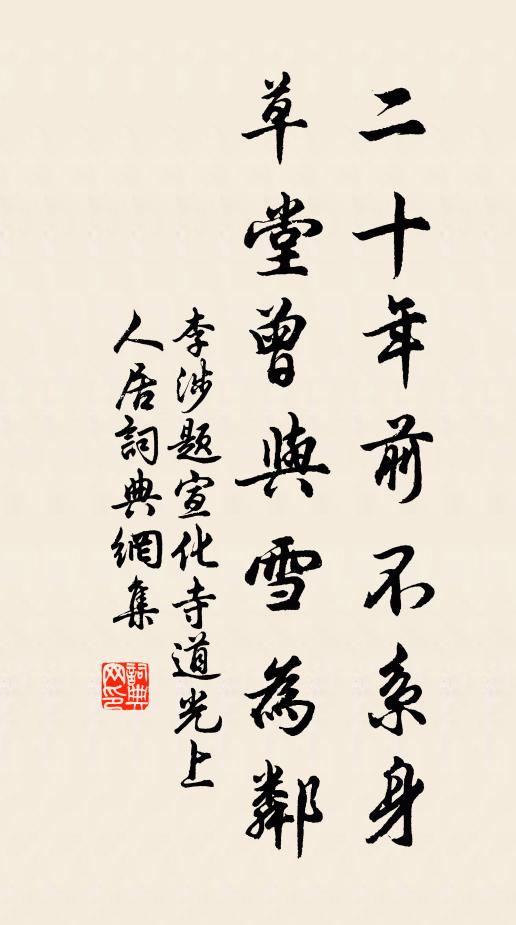 二十年前不系身
草堂曾與雪為鄰
李涉題宣化寺道光上
人居詞典網集
詞典
网印